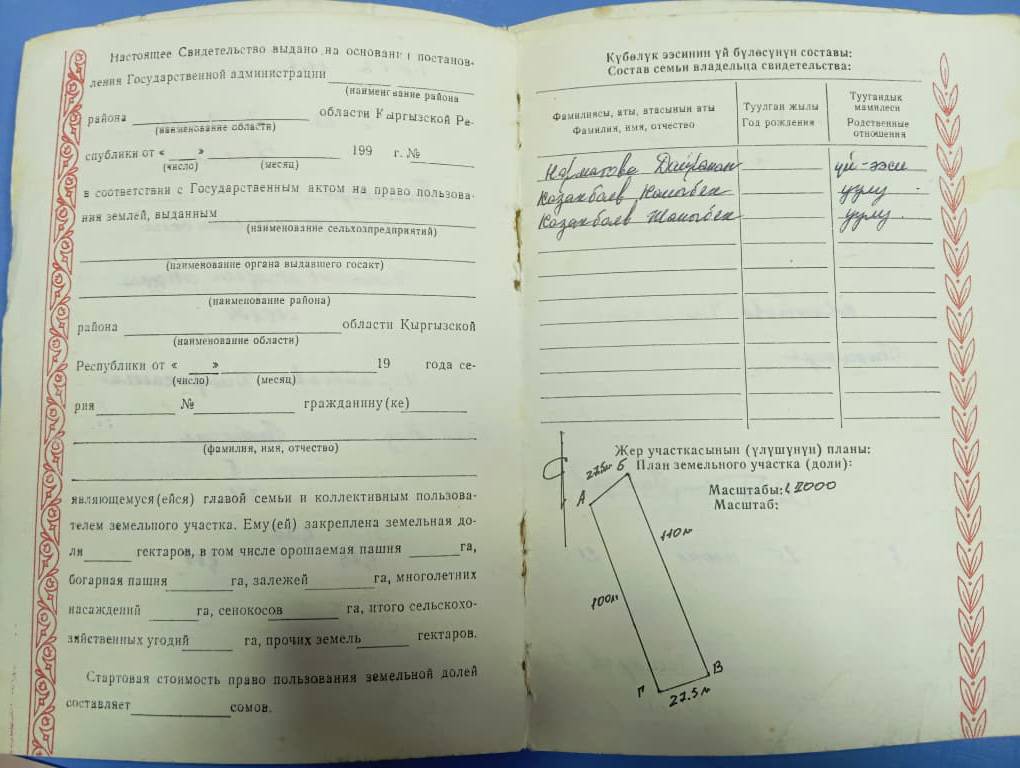 Настоящее Свидетельство выдано на основании постанов-
ления Государственной администрации
(наименование района
района области Кыргызской Ре-
(наименование области)
спублики от « » 199 г. №
(число) (месяц)
в соответствии с Государственным актом на право пользова-
ния землей, выданным
(наименование сельхозпредприятий)
(наименование органа выдавшего госакт)
(наименование района)
района области Кыргызской
(наименование области)
Республики от « » 19 года се-
(число) (месяц)
рия № гражданину(ке)
(фамилия, имя, отчество)
являющемуся(ейся) главой семьи и коллективным пользова-
телем земельного участка. Ему(ей) закреплена земельная до-
ля гектаров, в том числе орошаемая пашня га,
богарная пашня га, залежей га, многолетних
насаждений га, сенокосов га, итого сельскохо-
зяйственных угодий га, прочих земель гектаров.
Стартовая стоимость право пользования земельной долей
составляет сомов.
Күбөлүк ээсинин үй бүлөсүнүн составы:
Состав семьи владельца свидетельства:
Фамилиясы, аты, атасынын аты
Фамилия, имя, отчество
Туулган жылы
Год рождения
Туугандык
мамилеси
Родственные
отношения
Норматова үй-ээси
Казакбаев уулу
Казакбаев Жаныбек уулу
Жер участкасынын (үлүшүнүн) планы:
План земельного участка (доли):
Масштабы: 1:2000
Масштаб:
С
27.5м Б
А
110м
100м
В
Г
27.5м